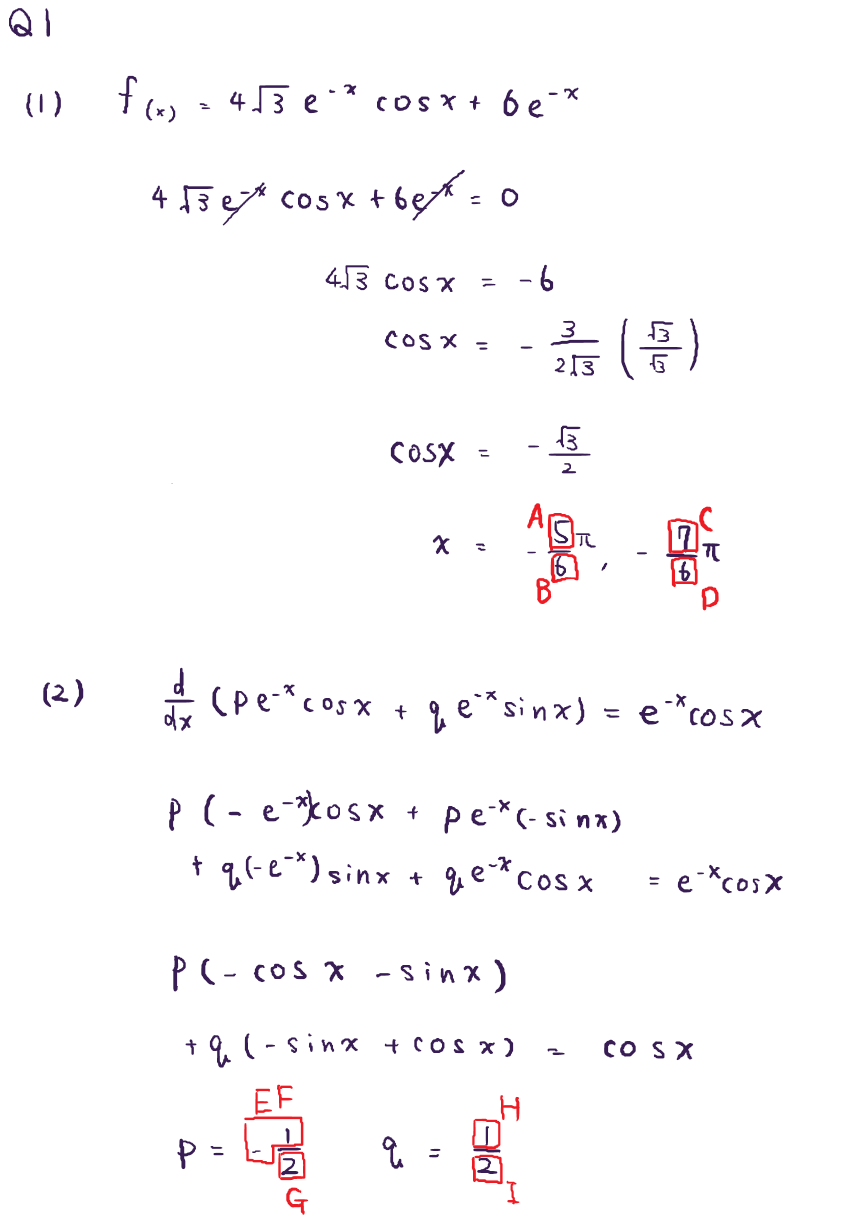 Q1
(1) f(x) = 4√3 e^-x cosx + 6e^-x
4√3 e^-x cosx + 6e^-x = 0
4√3 cosx = -6
cosx = - 3/2√3 (√3/√3)
cosx = - √3/2
x = - A 5/6 B π, - C 7/6 D π
(2) d/dx (pe^-x cosx + qe^-x sinx) = e^-x cosx
p(-e^-x)cosx + pe^-x(-sinx)
+ q(-e^-x)sinx + qe^-x cosx = e^-x cosx
p(-cosx - sinx)
+ q(-sinx + cosx) = cosx
EF H
p = -1/2 q = 1/2
G I